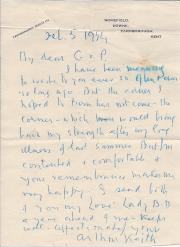 HOMEFIELD,
DOWNE,
FARNBOROUGH,
KENT
Feb. 5 1954
My dear G & P.
I have been meaning
to write to you ever so often & even
so long ago. But the corner I
hoped to turn has not come - the
corner - which would bring
back my strength after my long
illness of last Summer. But I'm
contented & comfortable &
your remembrance makes me
very happy. I send both
of you my love. Lady B.D
a year ahead of me - keeps
well - affectionately yours
Arthur Keith